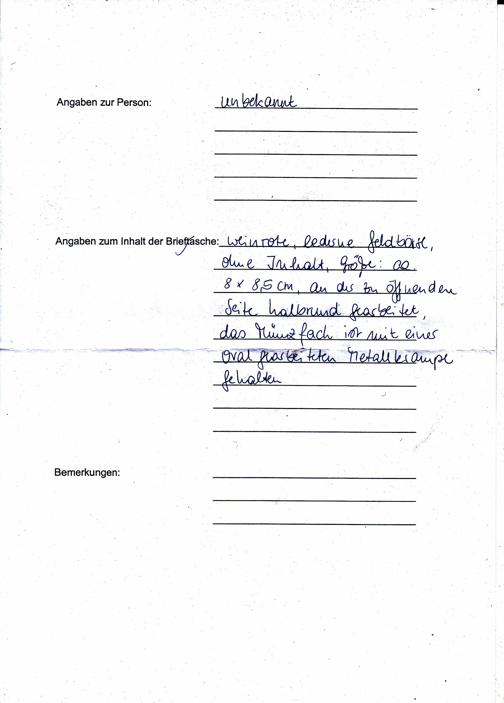 Angaben zur Person: unbekannt
Angaben zum Inhalt der Brieftasche: weinrote, lederne Geldbörse,
ohne Inhalt, Größe: ca.
8 x 8,5 cm, an der zu öffnenden
Seite halbrund gearbeitet,
das Münzfach ist mit einer
oval gearbeiteten Metallkrampe
gehalten
Bemerkungen: